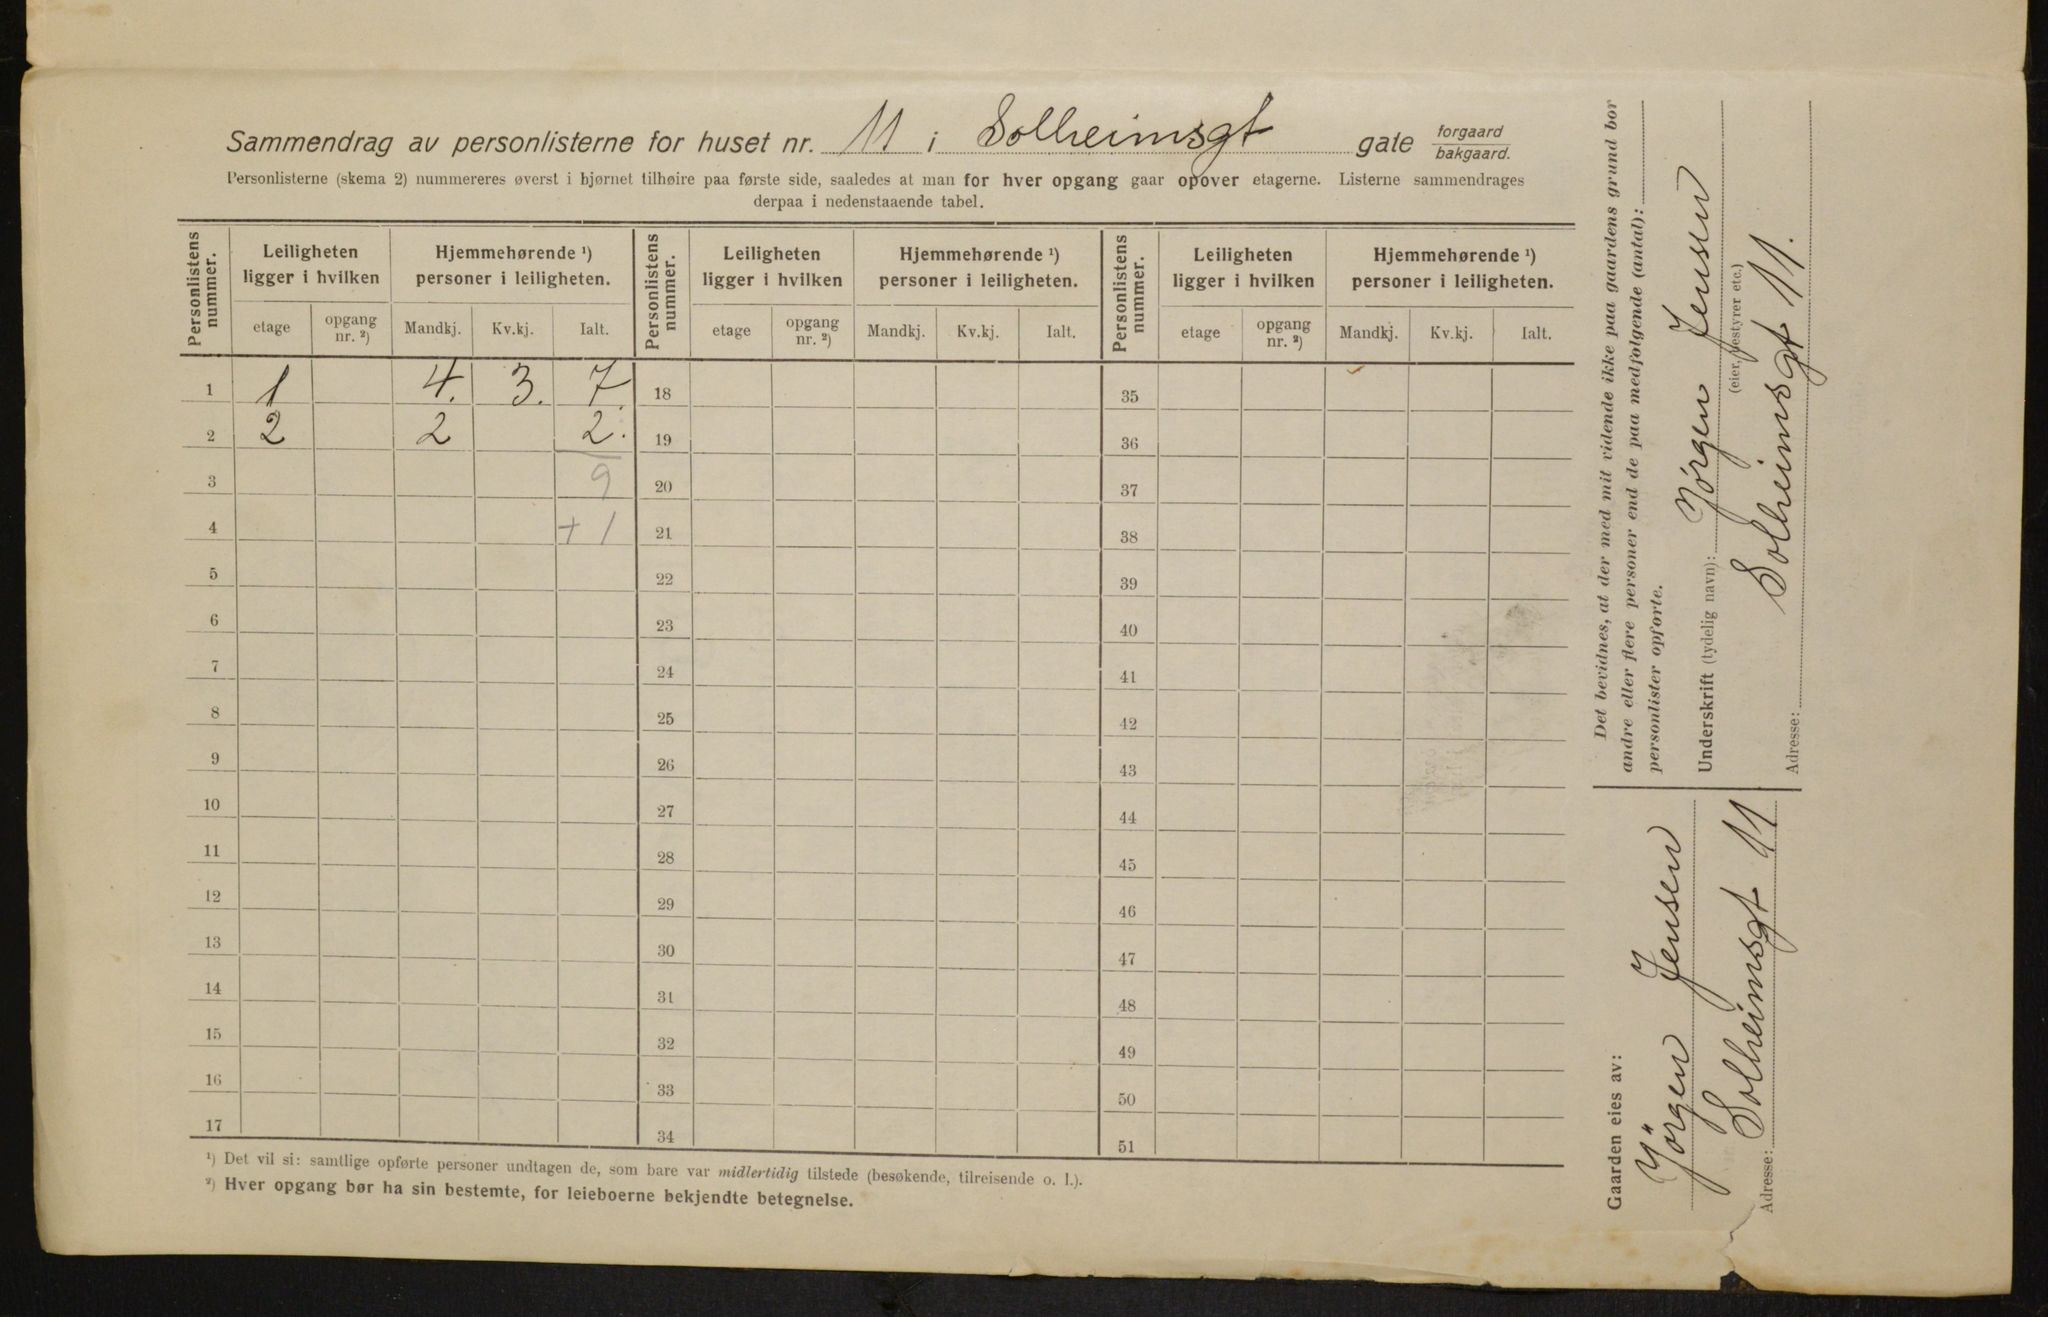 Sammendrag av personlisterne for huset nr. 11 i Solheimsgt gate forgaard bakgaard.
Personlisterne (skema 2) nummereres øverst i hjørnet tilhøire paa første side, saaledes at man for hver opgang gaar opover etagerne. Listerne sammendrages
derpaa i nedenstaaende tabel.
Personlistens nummer. Leiligheten ligger i hvilken Hjemmehørende ¹) personer i leiligheten. Personlistens nummer. Leiligheten ligger i hvilken Hjemmehørende ¹) personer i leiligheten. Personlistens nummer. Leiligheten ligger i hvilken Hjemmehørende ¹) personer i leiligheten.
etage opgang nr. ²) Mandkj. Kv.kj. Ialt. etage opgang nr. ²) Mandkj. Kv.kj. Ialt. etage opgang nr. ²) Mandkj. Kv.kj. Ialt.
1 1 4. 3. 7. 18 35
2 2 2 2. 19 36
3 9 20 37
4 + 1 21 38
5 22 39
6 23 40
7 24 41
8 25 42
9 26 43
10 27 44
11 28 45
12 29 46
13 30 47
14 31 48
15 32 49
16 33 50
17 34 51
¹) Det vil si: samtlige opførte personer undtagen de, som bare var midlertidig tilstede (besøkende, tilreisende o. l.).
²) Hver opgang bør ha sin bestemte, for leieboerne bekjendte betegnelse.
Det bevidnes, at der med mit vidende ikke paa gaardens grund bor
andre eller flere personer end de paa medfølgende (antal):
personlister opførte.
Underskrift (tydelig navn): Jörgen Jensen
(eier, bestyrer etc.)
Adresse: Solheimsgt 11.
Gaarden eies av:
Jörgen Jensen
Adresse: Solheimsgt 11